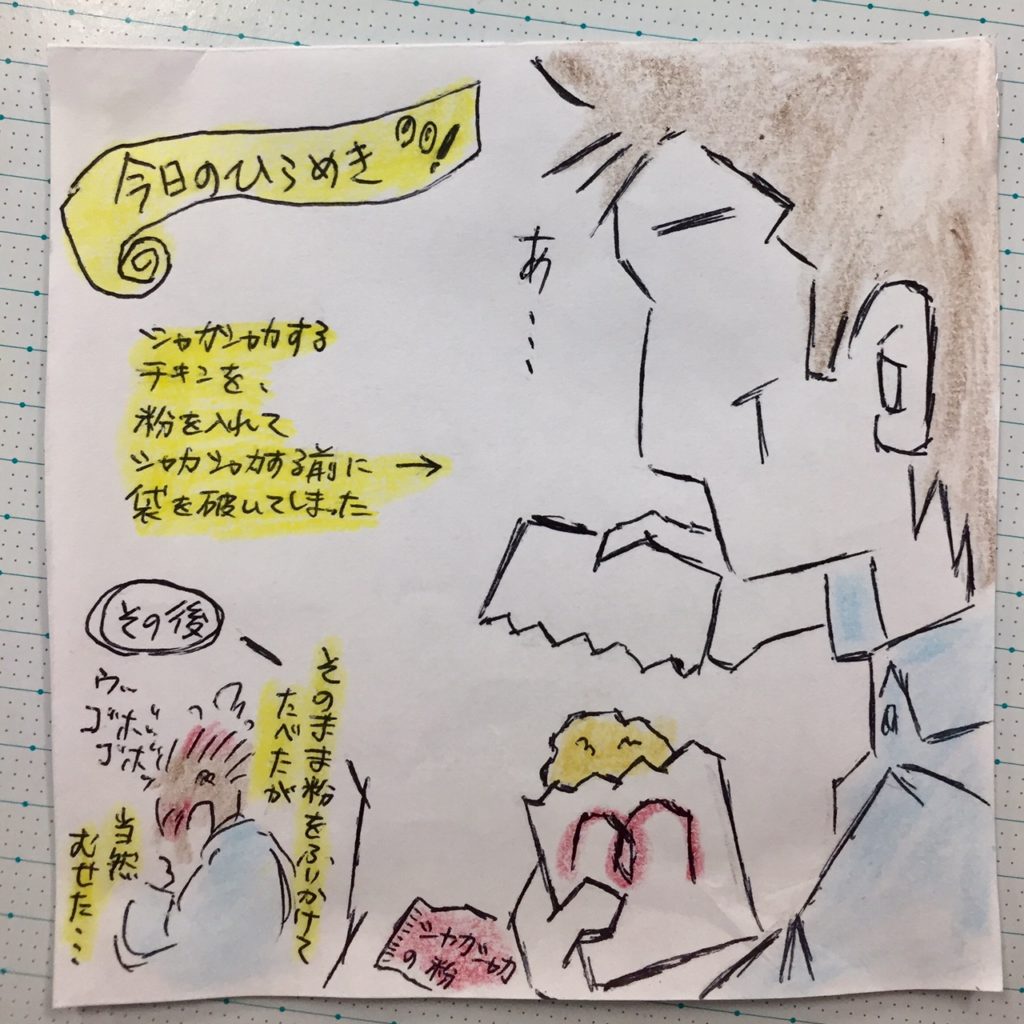 今日のひらめき!
あ...
シャカシャカする
チキンを、
粉を入れて
シャカシャカする前に →
袋を破いてしまった
その後
そのまま粉をふりかけて
たべたが
ウッ
ゴホッ
ゴホッ
当然
むせた...
シャカシャカ
の粉